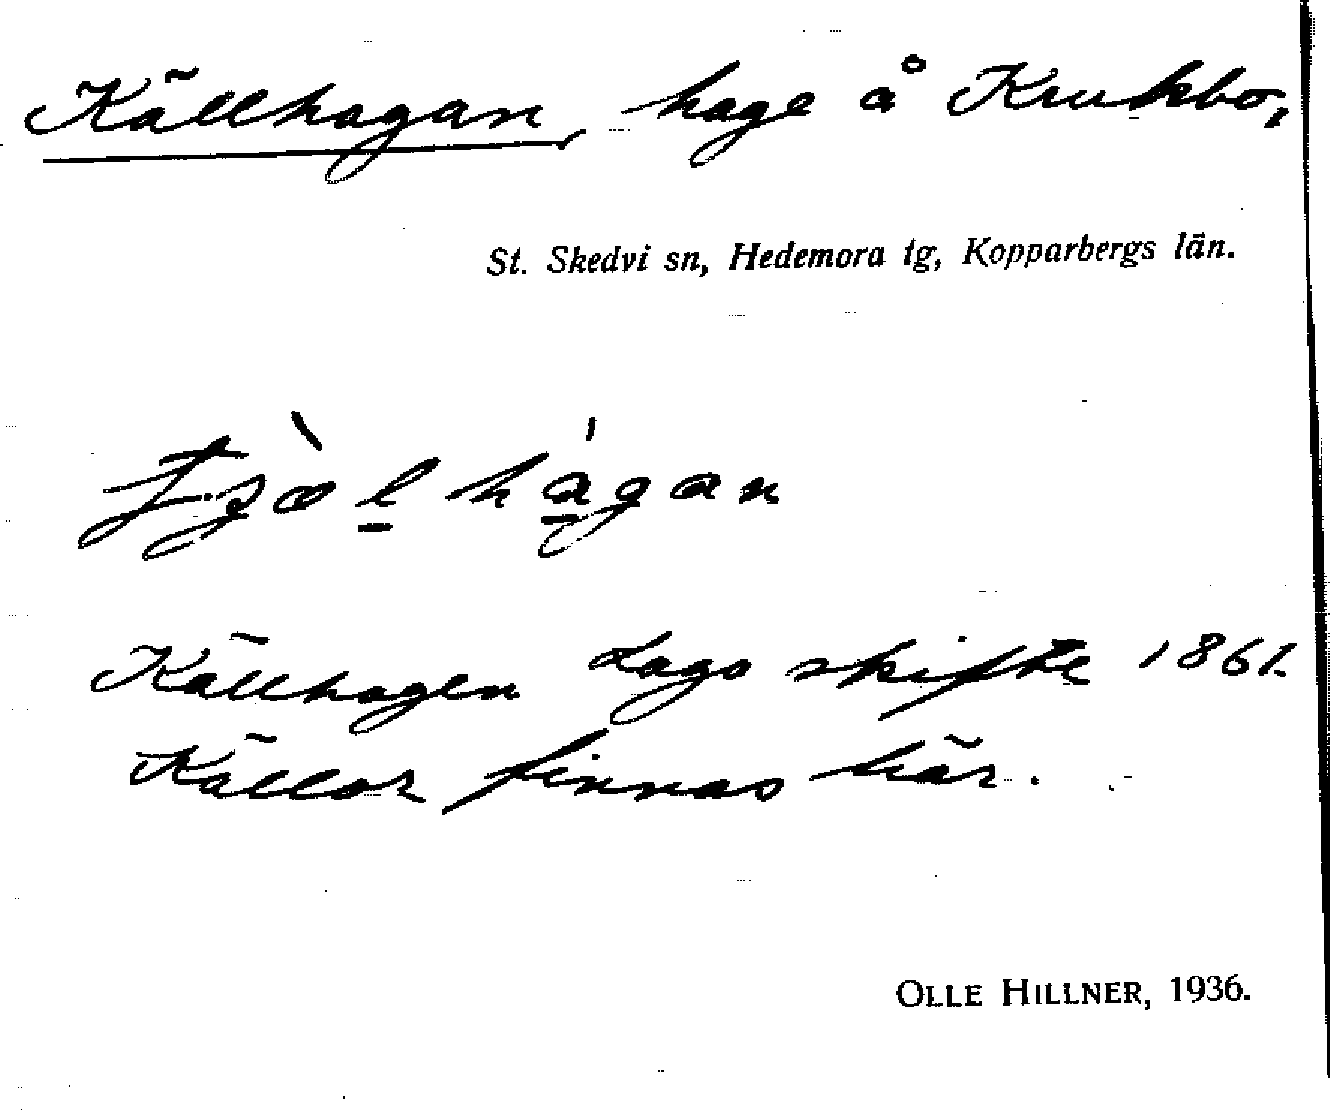 Källhagan, hage å Krukbo,
St. Skedvi sn, Hedemora tg, Kopparbergs län.
Källhagen Laga skifte 1861.
Källor finnas här.
OLLE HILLNER, 1936.